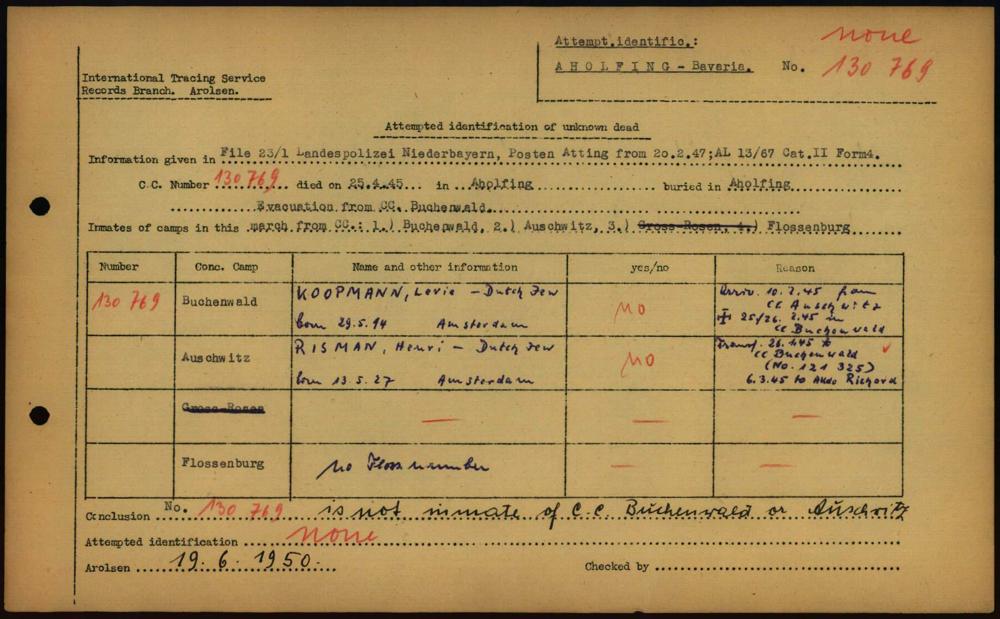 none
Attempt.identific.:
AHOLFING - Bavaria. No. 130 769
International Tracing Service
Records Branch. Arolsen.
Attempted identification of unknown dead
Information given in File 23/1 Landespolizei Niederbayern, Posten Atting from 20.2.47;AL 13/67 Cat.II Form4.
C.C. Number 130 769 died on 25.4.45 in Aholfing buried in Aholfing
Evacuation from CC. Buchenwald.
Inmates of camps in this march from CC.: 1.) Buchenwald, 2.) Auschwitz, 3.) Gross-Rosen, 4.) Flossenburg
Number Conc. Camp Name and other information yes/no Reason
130 769 Buchenwald KOOPMANN, Levie - Dutch Jew
born 29.5.94 Amsterdam
no
Arriv. 10.2.45 from
CC Auschwitz
25/26. 2.45 in
CC Buchenwald
Auschwitz RISMAN, Henri - Dutch Jew
born 13.5.27 Amsterdam
no
Transf. 26.1.45 to
CC Buchenwald
(No. 121 325)
6.3.45 to
Gross-Rosen — — —
Flossenburg no Floss number — —
Conclusion No. 130 769 is not inmate of C.C. Buchenwald or Auschwitz
Attempted identification none
Arolsen 19. 6. 1950. Checked by